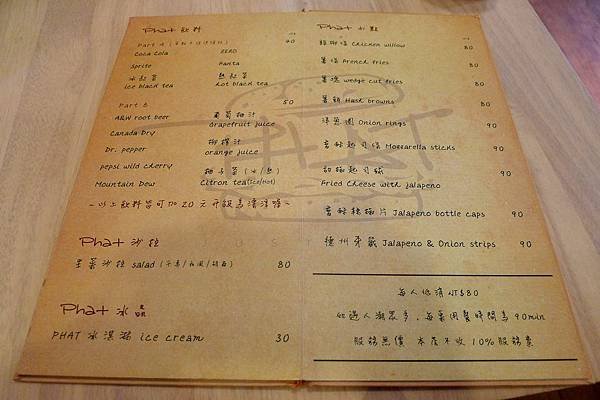 Phat 飲料
Part A 40
Coca Cola ZERO
Sprite Fanta
冰紅茶 熱紅茶
ice black tea hot black tea
Part B 50
A&W root beer 葡萄柚汁
Canada Dry Grapefruit juice
Dr. pepper 柳橙汁
orange juice
pepsi wild cherry 柚子茶 (冰/熱)
Mountain Dew Citron tea(ice/Hot)
~以上飲料皆可加20元升級為清洋蔥~
Phat 沙拉
生菜沙拉 salad 80
Phat 冰品
PHAT 冰淇淋 ice cream 30
Phat 小點
雞柳條 Chicken willow 80
薯條 French fries 80
薯塊 wedge cut fries 80
薯餅 Hash browns 80
洋蔥圈 Onion rings 90
起司條 Mozzarella sticks 90
Fried Cheese with jalapeno 90
辣椒片 Jalapeno bottle caps 90
德州 Jalapeno & Onion strips 90
每人低消NT$80
如遇人潮眾多，每桌用餐時間為90min
服務無價 本店不收10%服務費